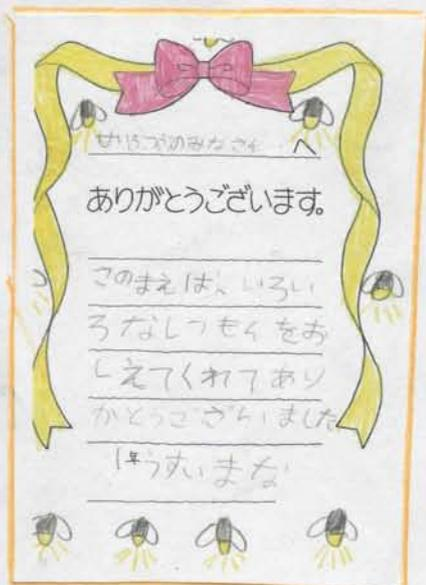 のみなさん へ
ありがとうございます。
このまえは、いろい
ろなしつもんをお
しえてくれてあり
がとうございました
1年うすいまな